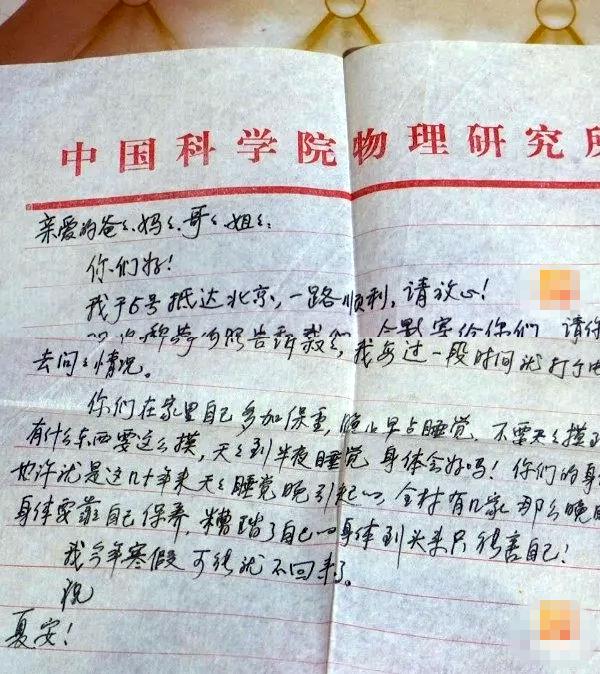 中国科学院物理研究所
亲爱的爸爸、妈妈、哥哥、姐姐:
你们好!
我于6号抵达北京,一路顺利,请放心!
给你们 请你
去问问情况。 我每过一段时间就打个电
你们在家里自己多加保重,晚上早点睡觉,不要天天摸到
有什么东西要这么摸,天天到半夜睡觉 身体会好吗!你们的身
也许就是这几十年来天天睡觉晚引起的,全村有几家那么晚
身体要靠自己保养,糟蹋了自己的身体到头来只能害自己!
我今年寒假可能就不回来了。
祝
夏安!